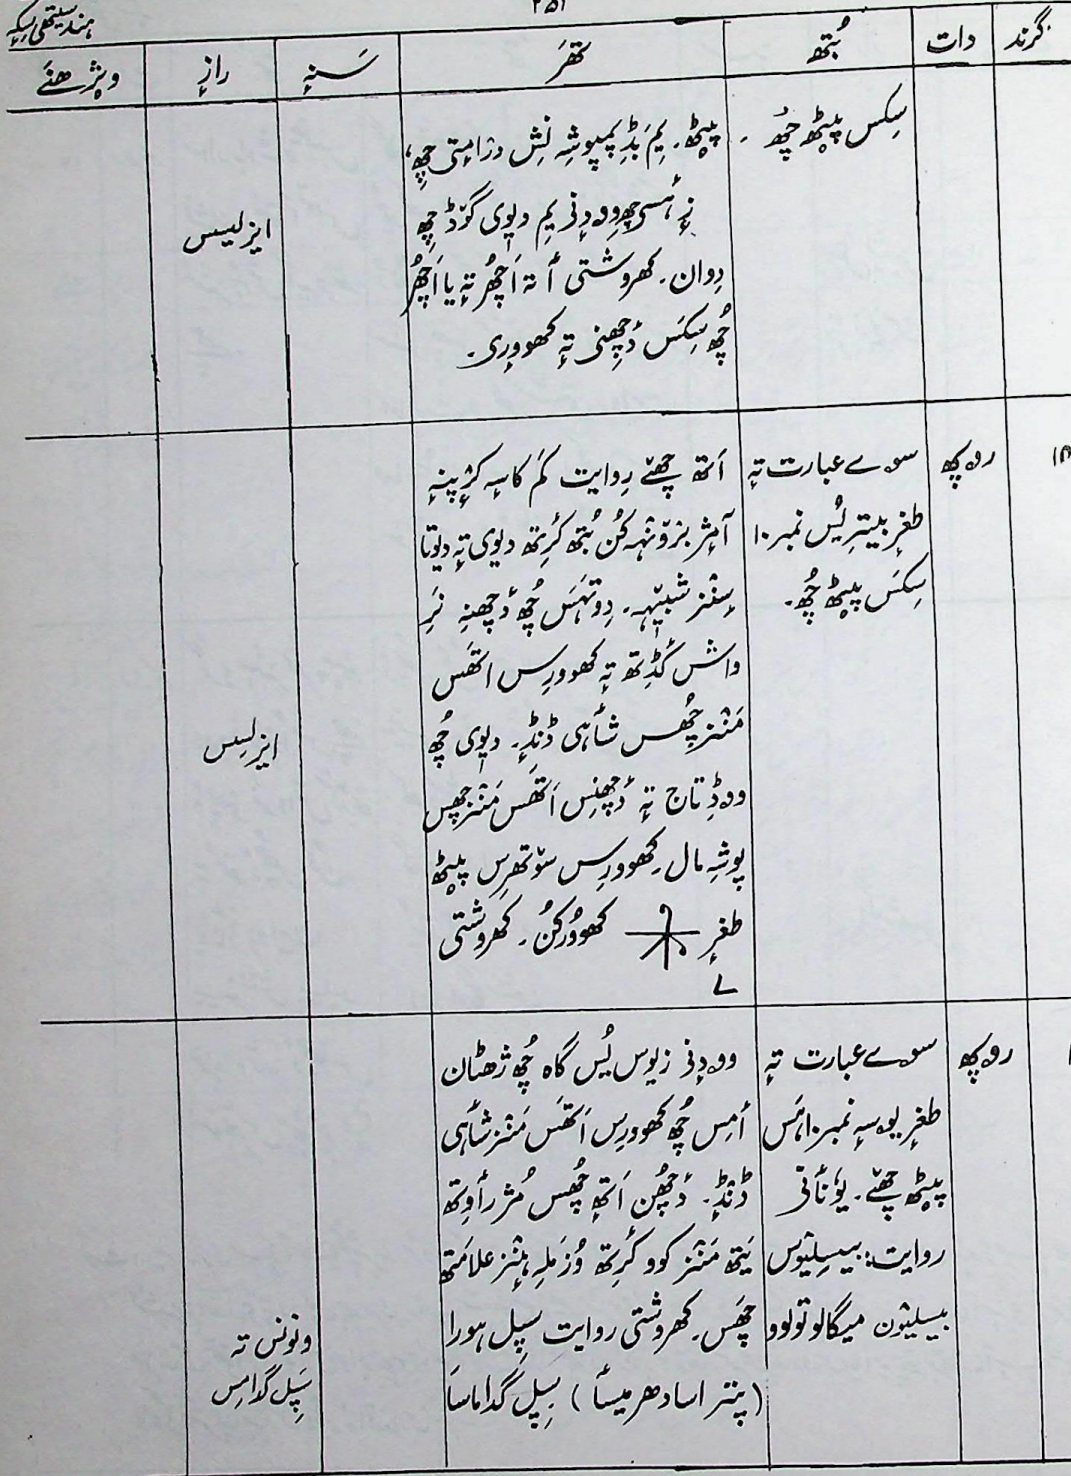 ہند سیتھی سِکہٕ
۲۵۱
گرند دات بُتھ تھَر سَنہٕ رازٕ ویژھنَے
سِکس پیٹھ چھُ۔
پیٹھ۔ یِم بَڈِ پمپوشہِ نِش درٛامِتی چھِ،
زٕ ہُسۍ چھِ وودٕنۍ یِم دیوی گوٚڈ چھِ
دِوان۔ کھروشتی أ تہٕ اَچھُر تہٕ یا اَچھُر
چھُ سِکس دٔچھِنۍ تہٕ کھووٕرۍ۔
ایزلیسس
روپھ
سوے عبارت تہٕ
طغرٕ بیترِ یُس نمبر ۱۰
سِکس پیٹھ چھُ۔
اَتھ چھےٚ رِوایت کَم کاسہٕ کرٕپنہٕ
آمٕژ برٛونٛہہ کُن بُتھ کٔرِتھ دیوی تہٕ دیوتا
سٕنٛز شبیہہ۔ دوتہَس چھُ دٔچھنہٕ نَرِ
واش کٔڈِتھ تہٕ کھووٕرِس اتھس
مَنٛز چھُس شاہی ڈنڈٕ۔ دیوی چھُ
ووڈِ تاج تہٕ دٔچھنِس اَتھَس مَنٛز چھس
پوشہِ مال۔ کھووٕرِس سۆتھرِس پیٹھ
طغرٕ کھووُر کُن۔ کھروشتی
ے
ایزلیسس
روپھ
سوے عبارت تہٕ
طغرٕ یوسہٕ نمبر ۱۰ ہَس
پیٹھ چھےٚ۔ یوٗنٲنی
روایت: بیسِلیوٗس
بیسلیوٗن میگالو تولوو
وودٕنۍ زیوس یُس گاہ چھُ ژھٹان
أمِس چھُ کھووٕرِس اَتھَس مَنٛز شاہی
ڈنڈٕ۔ دٔچھُن اَتھٕ چھُس مُژ رٲوِتھ
یَتھ مَنٛز کوو کٔرِتھ وُزمَلہِ ہٕنٛز علامتھ
چھَس۔ کھروشتی روایت سپل ہورا
(پتٕر اسا دھر میسأ) سپل گداماسا
ونونس تہ
سَپل گدامِس